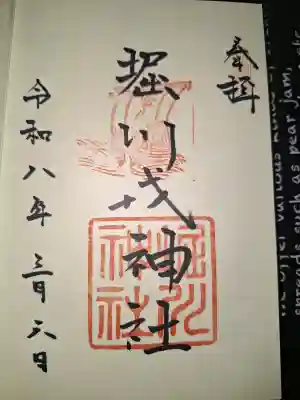 奉拝
堀川戎神社
令和八年 三月六日
堀川
神社
We offer various kinds of bread
spreads such as pear jam,